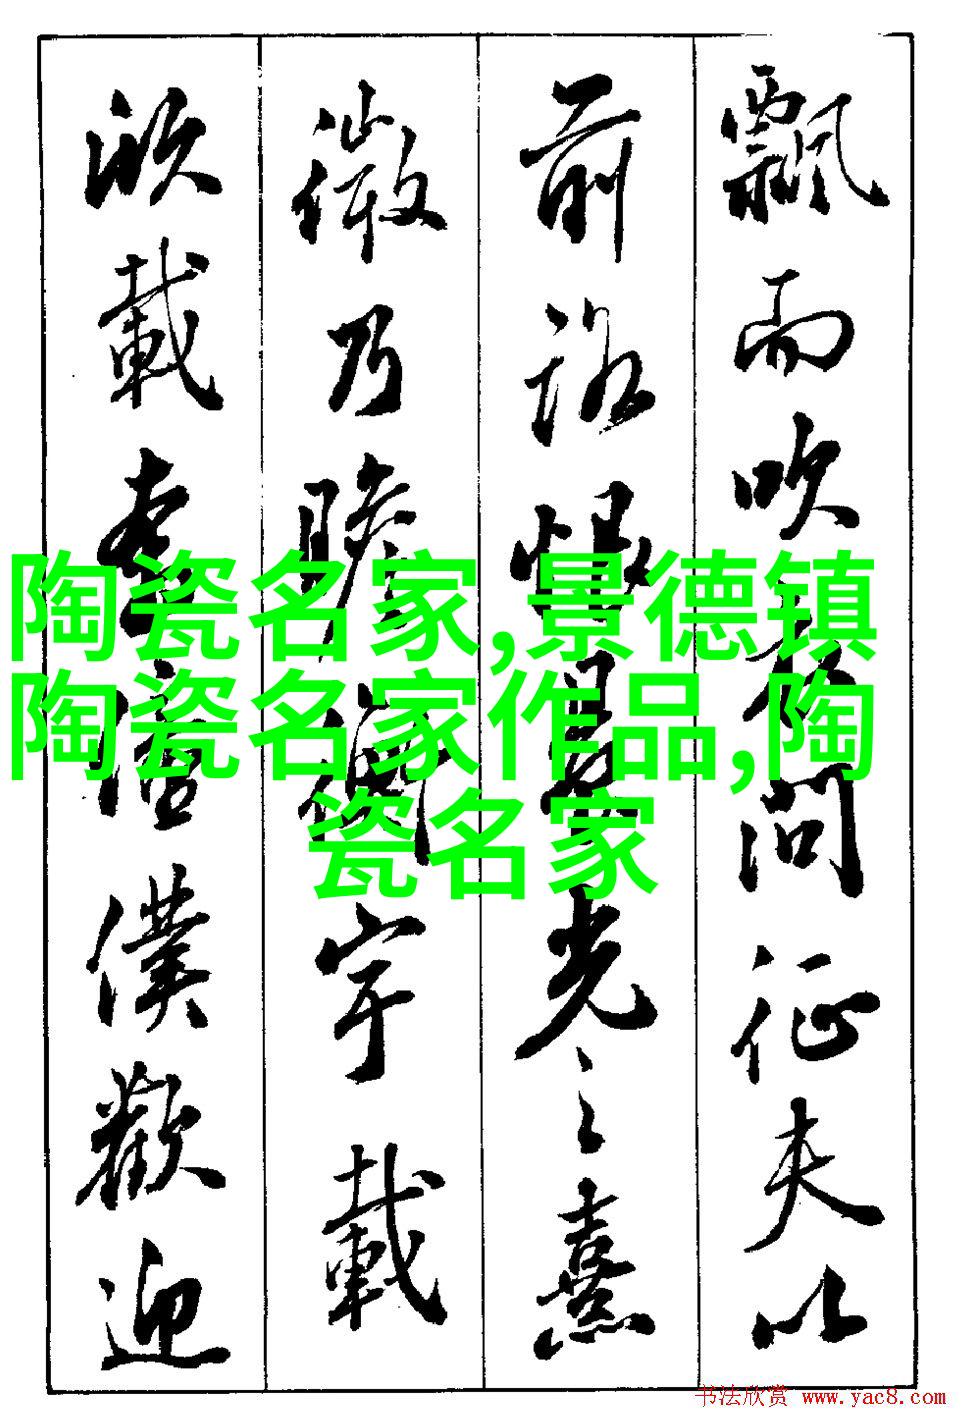 飄而吹衣問征夫以
前路恨晨光之熹
微乃瞻衡宇載
欣載奔僮僕歡迎
陶瓷名家,景德镇
陶瓷名家作品,陶
瓷名家
书法欣赏 www.yac8.com